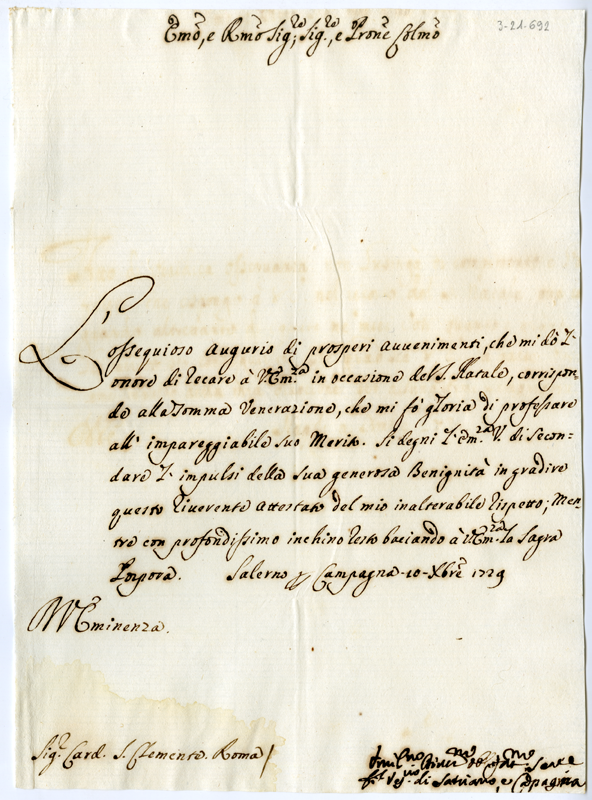 3-21-692
Emo, e Rmo Sig:re Sig:re, e Prone Colmo
L'ossequioso augurio di prosperi avvenimenti, che mi dò l'
onore di recare à V. Em.za in occasione del S. Natale, corrispon-
de alla somma venerazione, che mi fò gloria di professare
all' impareggiabile suo Merito. Si degni l'Em.za V. di secon-
dare l' impulsi della sua generosa Benignità in gradire
questo riverente attestato del mio inalterabile rispetto; Men-
tre con profondissimo inchino resto baciando à V. Em.za la Sagra
Porpora. Salerno p Campagna 10 Xbre 1729
V. Eminenza.
Sig.r Card. S. Clemente. Roma/
Umil.mo Serre
Ves.vo di Satriano, e Campagna